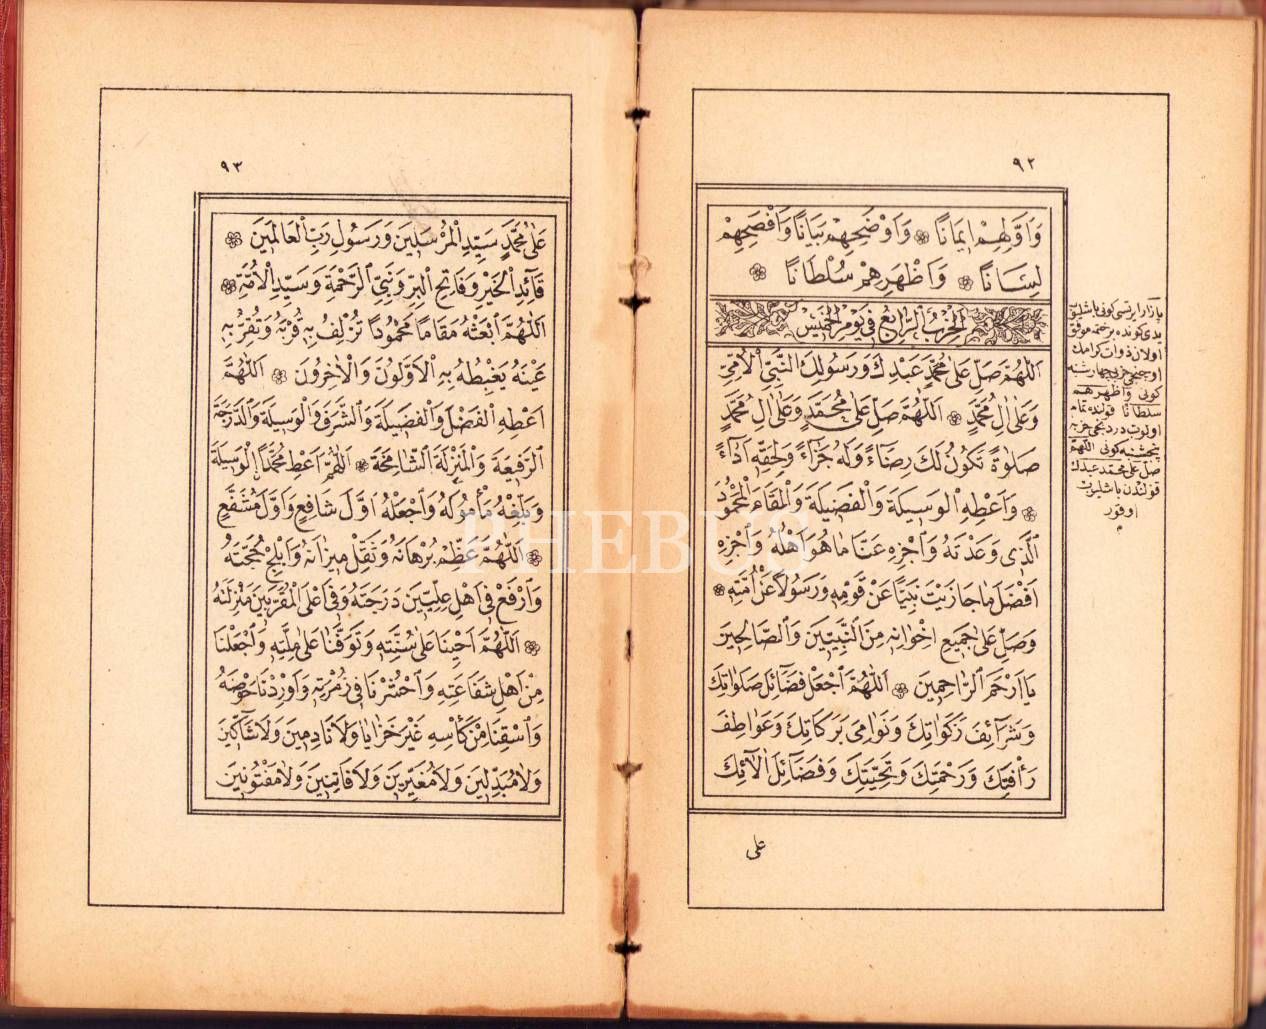 ٩٢
وَاَوَّلِهِمْ اِيمَانًا وَاَوْضَحِهِمْ بَيَانًا وَاَفْصَحِهِمْ
لِسَانًا وَاَظْهَرِهِمْ سُلْطَانًا
اَلْحِزْبُ الرَّابِعُ فِي يَوْمِ الْخَمِيسْ
اَللّٰهُمَّ صَلِّ عَلٰى مُحَمَّدٍ عَبْدِكَ وَرَسُولِكَ النَّبِيِّ الْاُمِّيِّ
وَعَلٰى اٰلِ مُحَمَّدٍ اَللّٰهُمَّ صَلِّ عَلٰى مُحَمَّدٍ وَعَلٰى اٰلِ مُحَمَّدٍ
صَلٰوةً تَكُونُ لَكَ رِضَاءً وَلَهُ جَزَآءً وَلِحَقِّهِ اَدَآءً
وَاَعْطِهِ الْوَسِيلَةَ وَالْفَضِيلَةَ وَالْمَقَامَ الْمَحْمُودَ
الَّذِى وَعَدْتَهُ وَاَجْزِهِ عَنَّا مَا هُوَ اَهْلُهُ وَاَجْزِهِ
اَفْضَلَ مَا جَازَيْتَ نَبِيًّا عَنْ قَوْمِهِ وَرَسُولًا عَنْ اُمَّتِهِ
وَصَلِّ عَلٰى جَمِيعِ اِخْوَانِهِ مِنَ النَّبِيِّينَ وَالصَّالِحِينَ
يَا اَرْحَمَ الرَّاحِمِينَ اَللّٰهُمَّ اجْعَلْ فَضَآئِلَ صَلَوَاتِكَ
وَشَرَآئِفَ زَكَوَاتِكَ وَنَوَامِىَ بَرَكَاتِكَ وَعَوَاطِفَ
رَأْفَتِكَ وَرَحْمَتِكَ وَتَحِيَّتِكَ وَفَضَآئِلَ اٰلَآئِكَ
على
بازار ايرتسى كونى باشليوب
يدى كونده بر ختمه موفق
اولان ذوات كرامك
اوچنجى حزبى چهارشنبه
كونى واظهرهم
سلطانا قولنده تمام
اولوب دردنجى حزبه
پنجشنبه كونى اللهم
صل على محمد عبدك
قولندن باشليوب
اوقور
م
٩٣
عَلٰى مُحَمَّدٍ سَيِّدِ الْمُرْسَلِينَ وَرَسُولِ رَبِّ الْعَالَمِينَ
قَآئِدِ الْخَيْرِ وَفَاتِحِ الْبِرِّ وَنَبِيِّ الرَّحْمَةِ وَسَيِّدِ الْاُمَّةِ
اَللّٰهُمَّ ابْعَثْهُ مَقَامًا مَحْمُودًا تُزْلِفُ بِهِ قُرْبَهُ وَتُقِرُّ بِهِ
عَيْنَهُ يَغْبِطُهُ بِهِ الْاَوَّلُونَ وَالْاٰخِرُونَ اَللّٰهُمَّ
اَعْطِهِ الْفَضْلَ وَالْفَضِيلَةَ وَالشَّرَفَ وَالْوَسِيلَةَ وَالدَّرَجَةَ
الرَّفِيعَةَ وَالْمَنْزِلَةَ الشَّامِخَةَ اَللّٰهُمَّ اَعْطِ مُحَمَّدًا الْوَسِيلَةَ
وَبَلِّغْهُ مَأْمُولَهُ وَاجْعَلْهُ اَوَّلَ شَافِعٍ وَاَوَّلَ مُشَفَّعٍ
اَللّٰهُمَّ عَظِّمْ بُرْهَانَهُ وَثَقِّلْ مِيزَانَهُ وَاَبْلِجْ حُجَّتَهُ
وَارْفَعْ فِى اَهْلِ عِلِّيِّينَ دَرَجَتَهُ وَفِى اَعْلَى الْمُقَرَّبِينَ مَنْزِلَتَهُ
اَللّٰهُمَّ اَحْيِنَا عَلٰى سُنَّتِهِ وَتَوَفَّنَا عَلٰى مِلَّتِهِ وَاجْعَلْنَا
مِنْ اَهْلِ شَفَاعَتِهِ وَاحْشُرْنَا فِى زُمْرَتِهِ وَاَوْرِدْنَا حَوْضَهُ
وَاسْقِنَا مِنْ كَأْسِهِ غَيْرَ خَزَايَا وَلَا نَادِمِينَ وَلَا شَآكِّينَ
وَلَا مُبَدِّلِينَ وَلَا مُغَيِّرِينَ وَلَا فَاتِنِينَ وَلَا مَفْتُونِينَ
PHEBUS